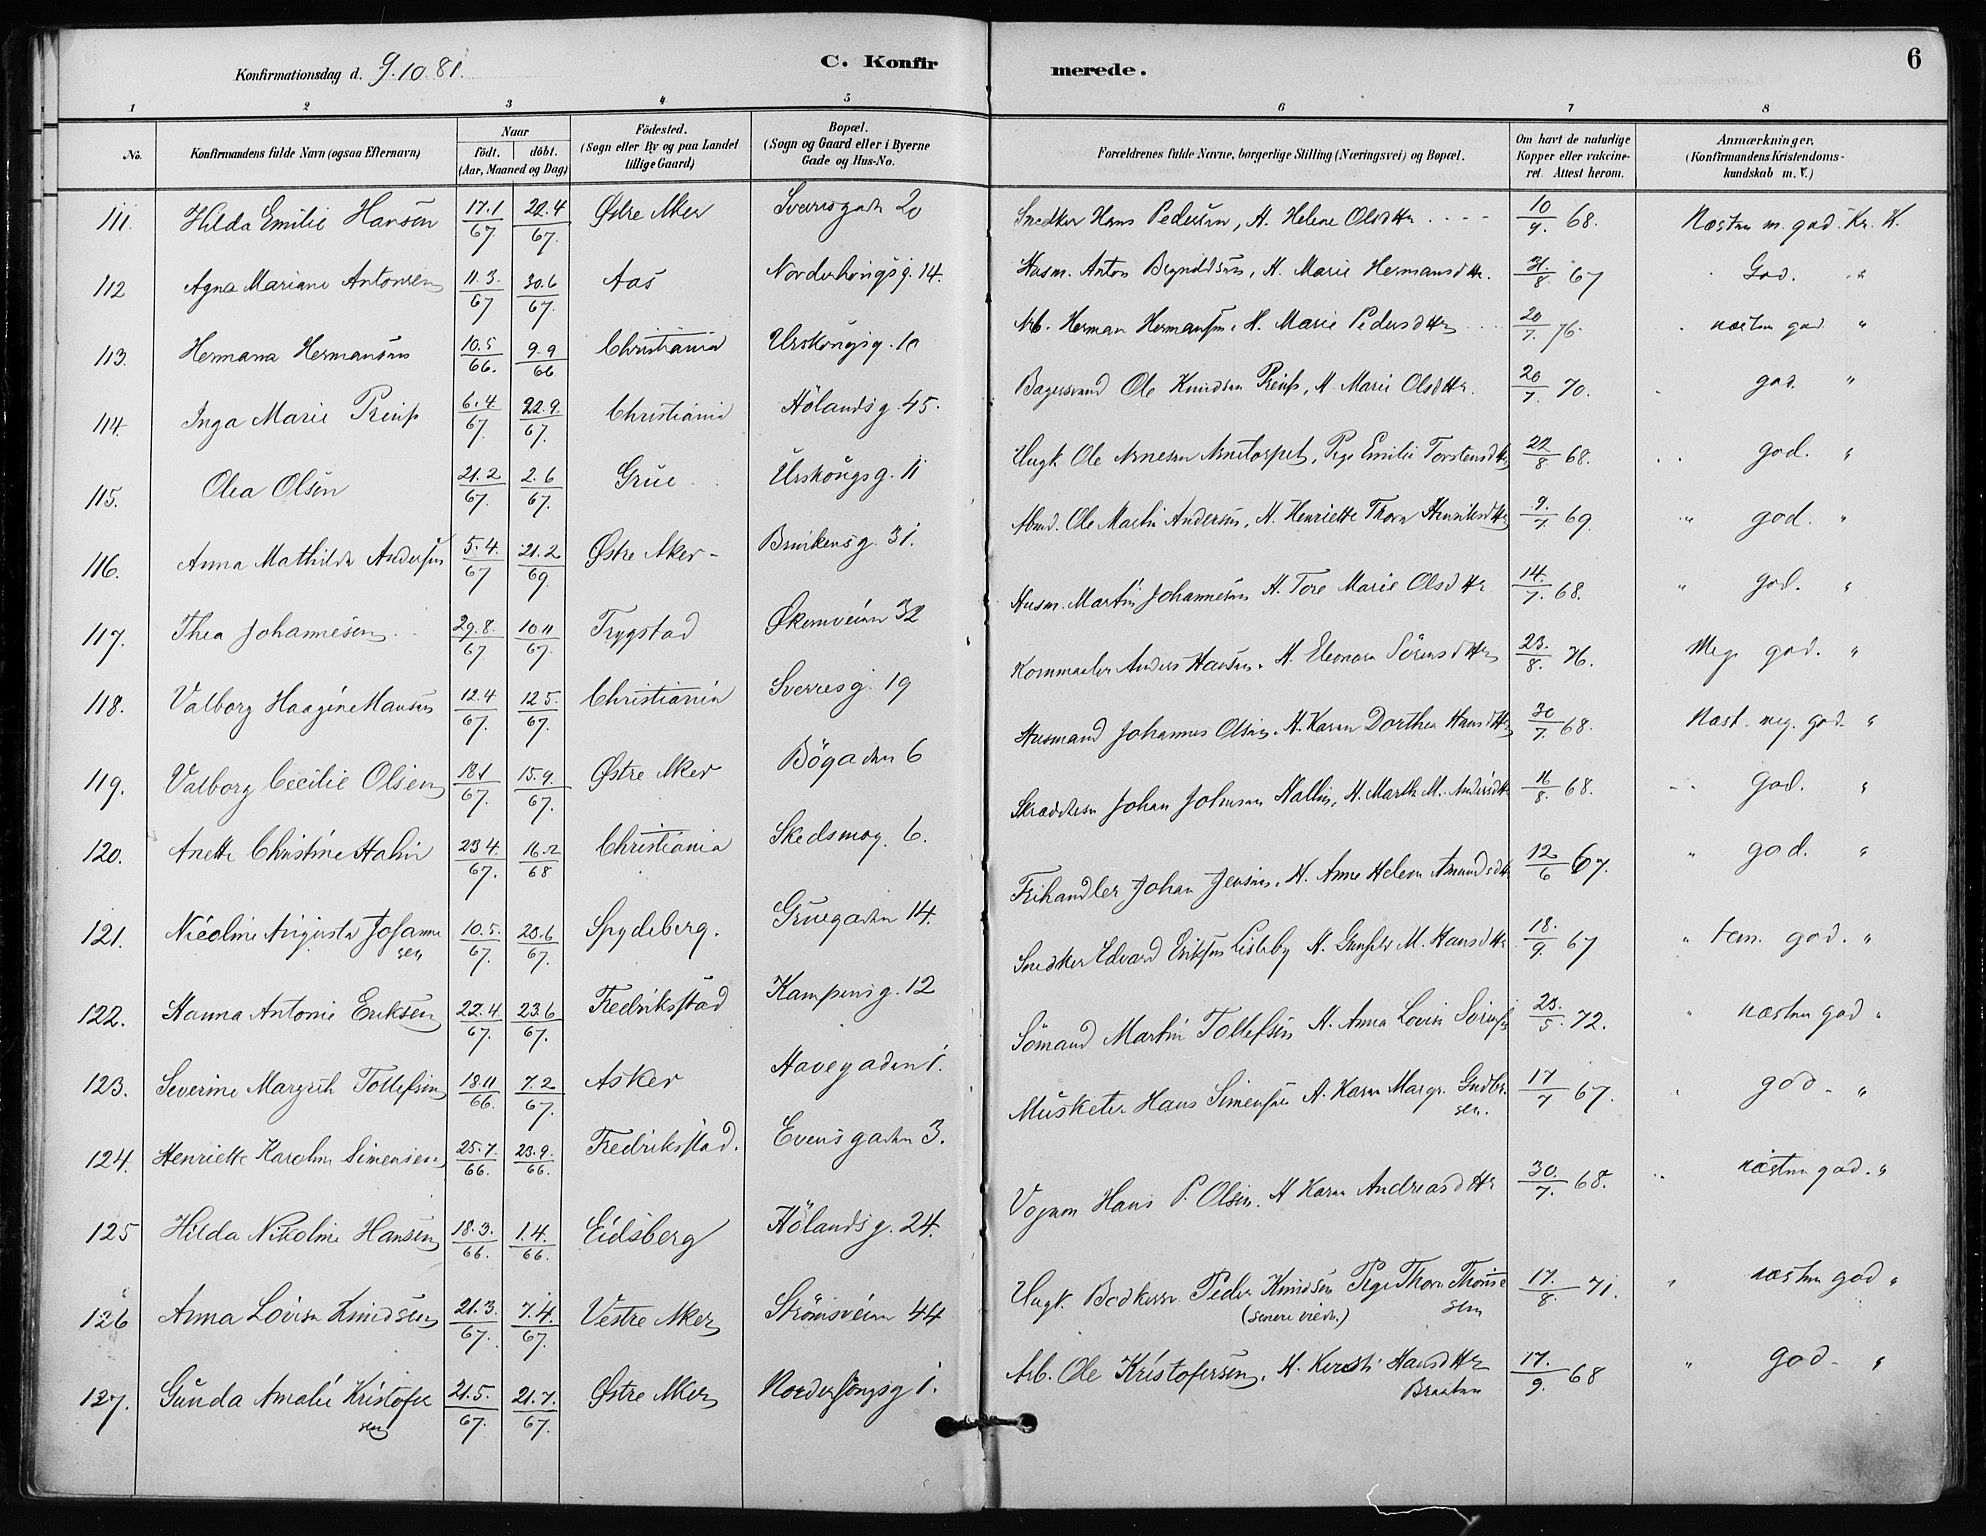 Konfirmationsdag d. 9.10.81. C. Konfirmerede. 6
1 2 3 4 5 6 7 8
No. Konfirmandens fulde Navn (ogsaa Efternavn) Naar födt. döbt. (Aar, Maaned og Dag) Födested. (Sogn eller By og paa Landet tillige Gaard) Bopæl. (Sogn og Gaard eller i Byerne Gade og Hus-No. Forældrenes fulde Navne, borgerlige Stilling (Næringsvei) og Bopæl. Om havt de naturlige Kopper eller vakcineret. Attest herom. Anmærkninger. (Konfirmandens Kristendomskundskab m. V.)
111. Hilda Emilie Hansen 17.1/67 22.4/67. Østre Aker Sverresgaden 20 Snedker Hans Pedersen, H. Helene Olsdttr 10/9. 68. Næsten m. god. Kr. K.
112 Agna Mariane Antonsen 11.3./67 30.6/67. Aas Norderhougsg. 14. Husm. Anton H. Marie Hermansdttr. 31/8. 67 God. "
113. Hermana Hermansen 10.5/66. 9.9/66 Christiania Urskougsg. 10 Arb. Herman Hermansen, H. Marie Pedersdttr 20/7. 76. næsten god. "
114. Inga Marie 6.4/67. 22.9./67. Christiania Hölandsg. 45. Bagersvend Ole Knudsen H. Marie Olsdttr. 20/7. 70. god. "
115. Olea Olsen 21.2/67. 2.6/67. Grue Urskougsg. 11 Ungk. Ole Arnesen Pige Emilie Torstensdttr 22/8 68. god. "
116. Anna Mathilde Andersen 5.4./67 21.2/69. Østre Aker Brinkensg. 31. Ole Martin Andersen, H. Henriette Thora Henriksdttr 9./7 69. god. "
117. Thea Johannesen 29.8./67. 10.11/67. Trygstad Økernveien 32 Husm. Martin Johannesen H. Tore Marie Olsdttr 14./7. 68. god. "
118. Valborg Haagine Hansen 12.4/67. 12.5./67. Christiania Sverresg. 19 Anders Hansen. H. Eleonora Sörensdttr 23./8. 76. Meg. god. "
119. Valborg Cecilie Olsen 18.1/67. 15.9./67. Østre Aker Bögaden 6 Husmand Johannes Olsen. H. Karen Dorthea Hansdttr 30/7. 68. Næst. meg. god. "
120. Anette Christine Halin 23 4./67. 16.2/68 Christiania Skedsmog. 6. Johan Johnsen Hallin, H. Marthe M. Andersdtr 16/8. 68. god. "
121. Nicoline Augusta Johannesen 10.5./67. 20.6/67. Spydeberg. Gruegaden 14. Frihandler Johan Jensen. H. Anne Helene Amundsdtr 12/6 67. god. "
122. Hanna Antonie Eriksen 22.4/67. 23.6/67. Fredriksstad Kampensg. 12 Snedker Edvard Eriksen Lisleby H. M. Hansdttr 18./9. 67 " tem. god. "
123. Severine Margreth Tollefsen 18.11/66. 7.2/67. Asker Havegaden 1. Sömand Martin Tollefsen H. Anna Lovise 23./5. 72. næsten god "
124. Henriette Karoline Simensen 25.7./66. 23.9./66. Fredriksstad. Evensgaden 3. Musketer Hans Simensen H. Karen Margr. Gudbr.sen. 17/7 67. god. "
125 Hilda Nikoline Hansen 18.3./66. 1.4./66. Eidsberg Hölandsg. 24. Vognm Hans P. Olsen. H Karen Andreasdttr 30./7. 68. næsten god. "
126 Anna Lovisa Knudsen 21.3./67. 7.4./67. Vestre Aker Strömsveien 44 Ungk. Bödkersv Peder Knudsen Pige Thora (senere viede.) 17./8. 71. næsten god "
127. Gunda Amalie Kristofersen 21.5./67. 21.7./67. Østre Aker Norderhougsg 1. Arb. Ole Kristofersen. H. Kersti Hansdttr Braaten 17./9. 68 god. "